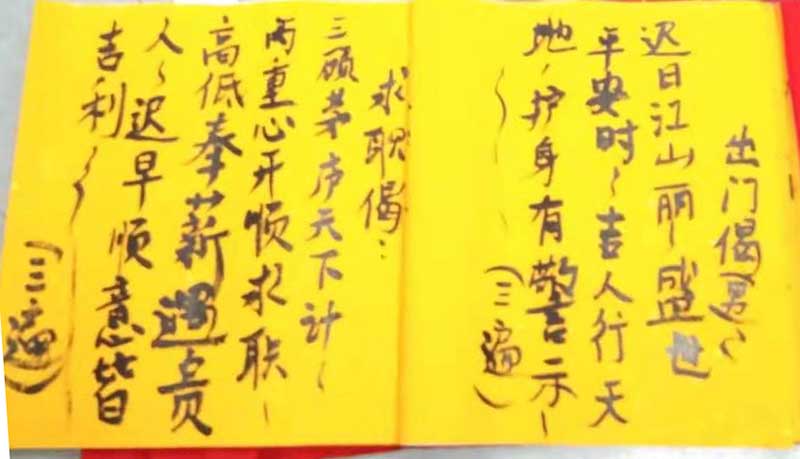 出门偈(男)：
迟日江山丽，盛世
平安时，吉人行天
地，护身有警示，
(三遍)
求职偈：
三顾茅庐天下计，
两重心开顺求联，
高低奉薪遇贵
人，迟早顺意皆
吉利，
(三遍)